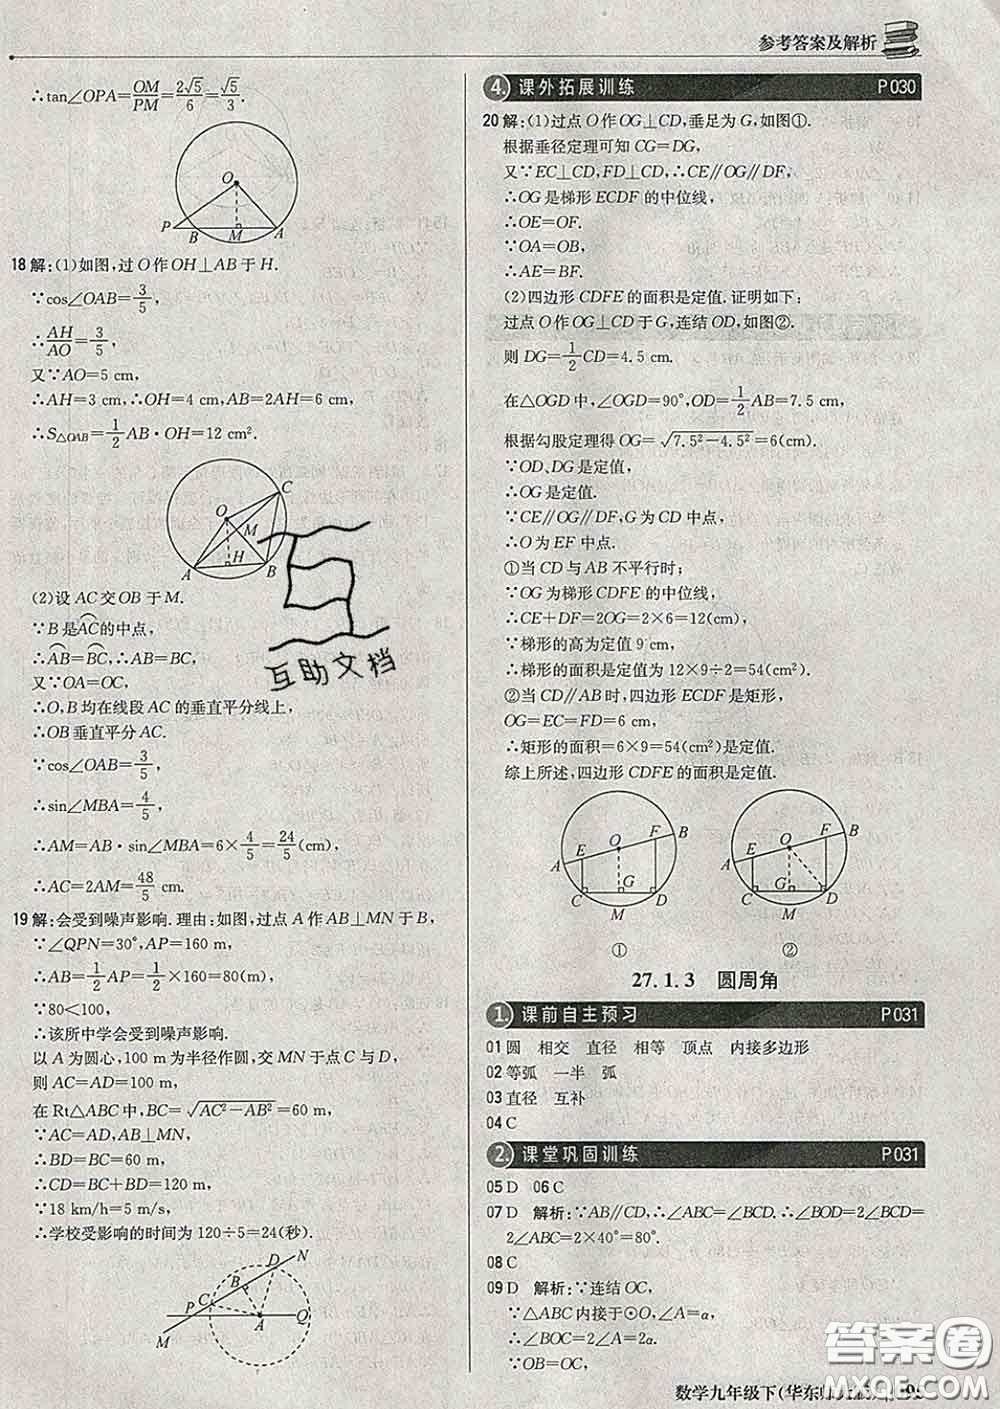 参考答案及解析
∴tan∠OPA=OM/PM=2√5/6=√5/3.
O
P B M A
18 解:(1)如图,过O作OH⊥AB于H.
∵cos∠OAB=3/5,
∴AH/AO=3/5,
又∵AO=5 cm,
∴AH=3 cm,∴OH=4 cm,AB=2AH=6 cm,
∴S△OAB=1/2AB·OH=12 cm².
C
O
M
H
A B
(2)设AC交OB于M.
∵B是AC的中点,
∴AB=BC,∴AB=BC,
又∵OA=OC,
∴O,B均在线段AC的垂直平分线上,
∴OB垂直平分AC.
∵cos∠OAB=3/5,
∴sin∠MBA=4/5,
∴AM=AB·sin∠MBA=6×4/5=24/5(cm),
∴AC=2AM=48/5 cm.
19 解:会受到噪声影响.理由:如图,过点A作AB⊥MN于B,
∵∠QPN=30°,AP=160 m,
∴AB=1/2AP=1/2×160=80(m),
∵80<100,
∴该所中学会受到噪声影响.
以A为圆心,100 m为半径作圆,交MN于点C与点D,
则AC=AD=100 m,
在Rt△ABC中,BC=√AC²-AB²=60 m,
∵AC=AD,AB⊥MN,
∴BD=BC=60 m,
∴CD=BC+BD=120 m,
∵18 km/h=5 m/s,
∴学校受影响的时间为120÷5=24(秒).
N
D
B
C
P
A Q
M
互助文档
4. 课外拓展训练 P030
20 解:(1)过点O作OG⊥CD,垂足为G,如图①.
根据垂径定理可知CG=DG,
又∵EC⊥CD,FD⊥CD,∴CE∥OG∥DF,
∴OG是梯形ECDF的中位线,
∴OE=OF.
∵OA=OB,
∴AE=BF.
(2)四边形CDFE的面积是定值.证明如下:
过点O作OG⊥CD于G,连结OD,如图②.
则DG=1/2CD=4.5 cm.
在△OGD中,∠OGD=90°,OD=1/2AB=7.5 cm,
根据勾股定理得OG=√7.5²-4.5²=6(cm).
∵OD,DG是定值,
∴OG是定值.
∵CE∥OG∥DF,G为CD中点,
∴O为EF中点.
①当CD与AB不平行时;
∵OG为梯形CDFE的中位线,
∴CE+DF=2OG=2×6=12(cm),
∵梯形的高为定值9 cm,
∴梯形的面积是定值为12×9÷2=54(cm²).
②当CD∥AB时,四边形ECDF是矩形,
OG=EC=FD=6 cm,
∴矩形的面积=6×9=54(cm²).
综上所述,四边形CDFE的面积是定值.
A E O F B
C G D
M
①
A E O F B
C G D
M
②
27.1.3 圆周角
1. 课前自主预习 P031
01 圆 相交 直径 相等 顶点 内接多边形
02 等弧 一半 弧
03 直径 互补
04 C
2. 课堂巩固训练 P031
05 D 06 C
07 D 解析:∵AB∥CD,∴∠ABC=∠BCD.∴∠BOD=2∠BCD=
2∠ABC=2×40°=80°.
08 C
09 D 解析:∵连结OC,
∵△ABC内接于⊙O,∠A=α,
∴∠BOC=2∠A=2α.
∵OB=OC,
答案圈
MXQE.COM
数学九年级下(华东师大